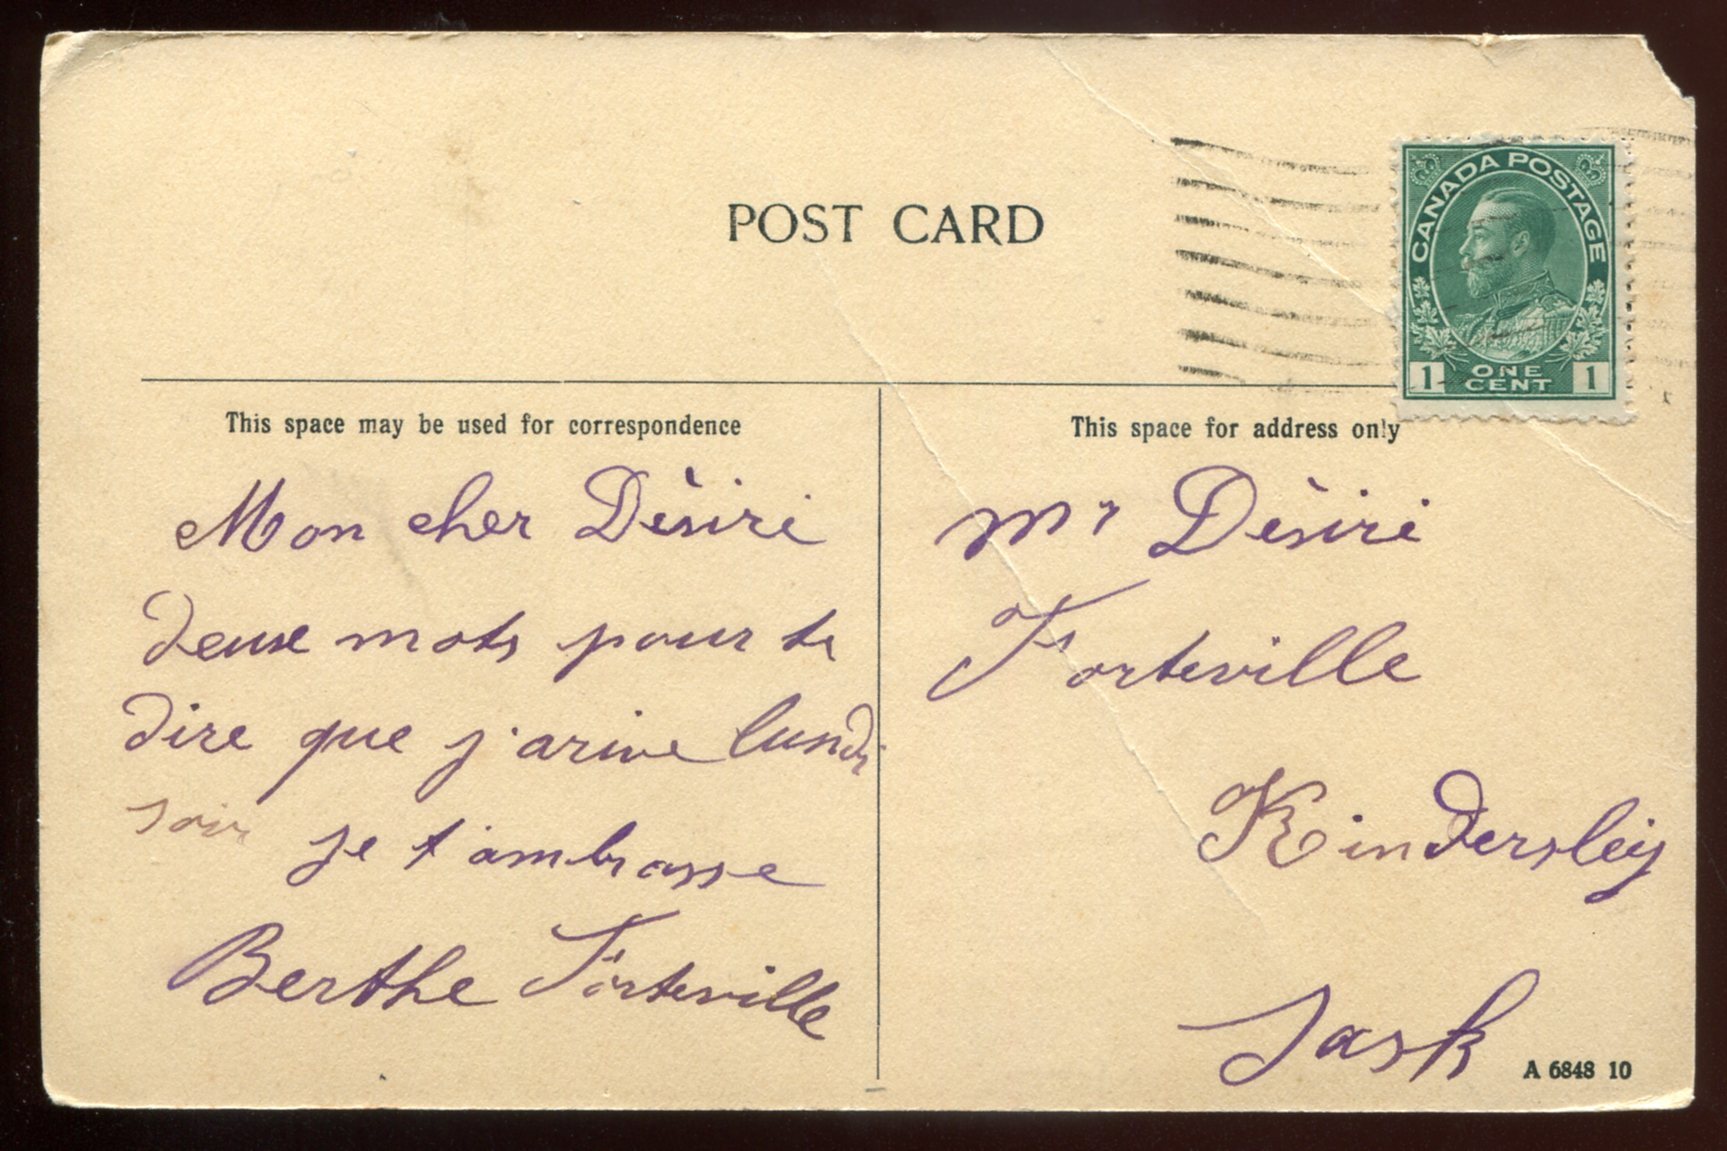 POST CARD
CANADA POSTAGE
1 ONE CENT 1
This space may be used for correspondence
This space for address only
Mon cher Dèsirè
deuxe mots pour te
dire que j'arive lundi
soir je t'ambrasse
Berthe Forteville
Mr Dèsirè
Forteville
Kindersley
Sask
A 6848 10